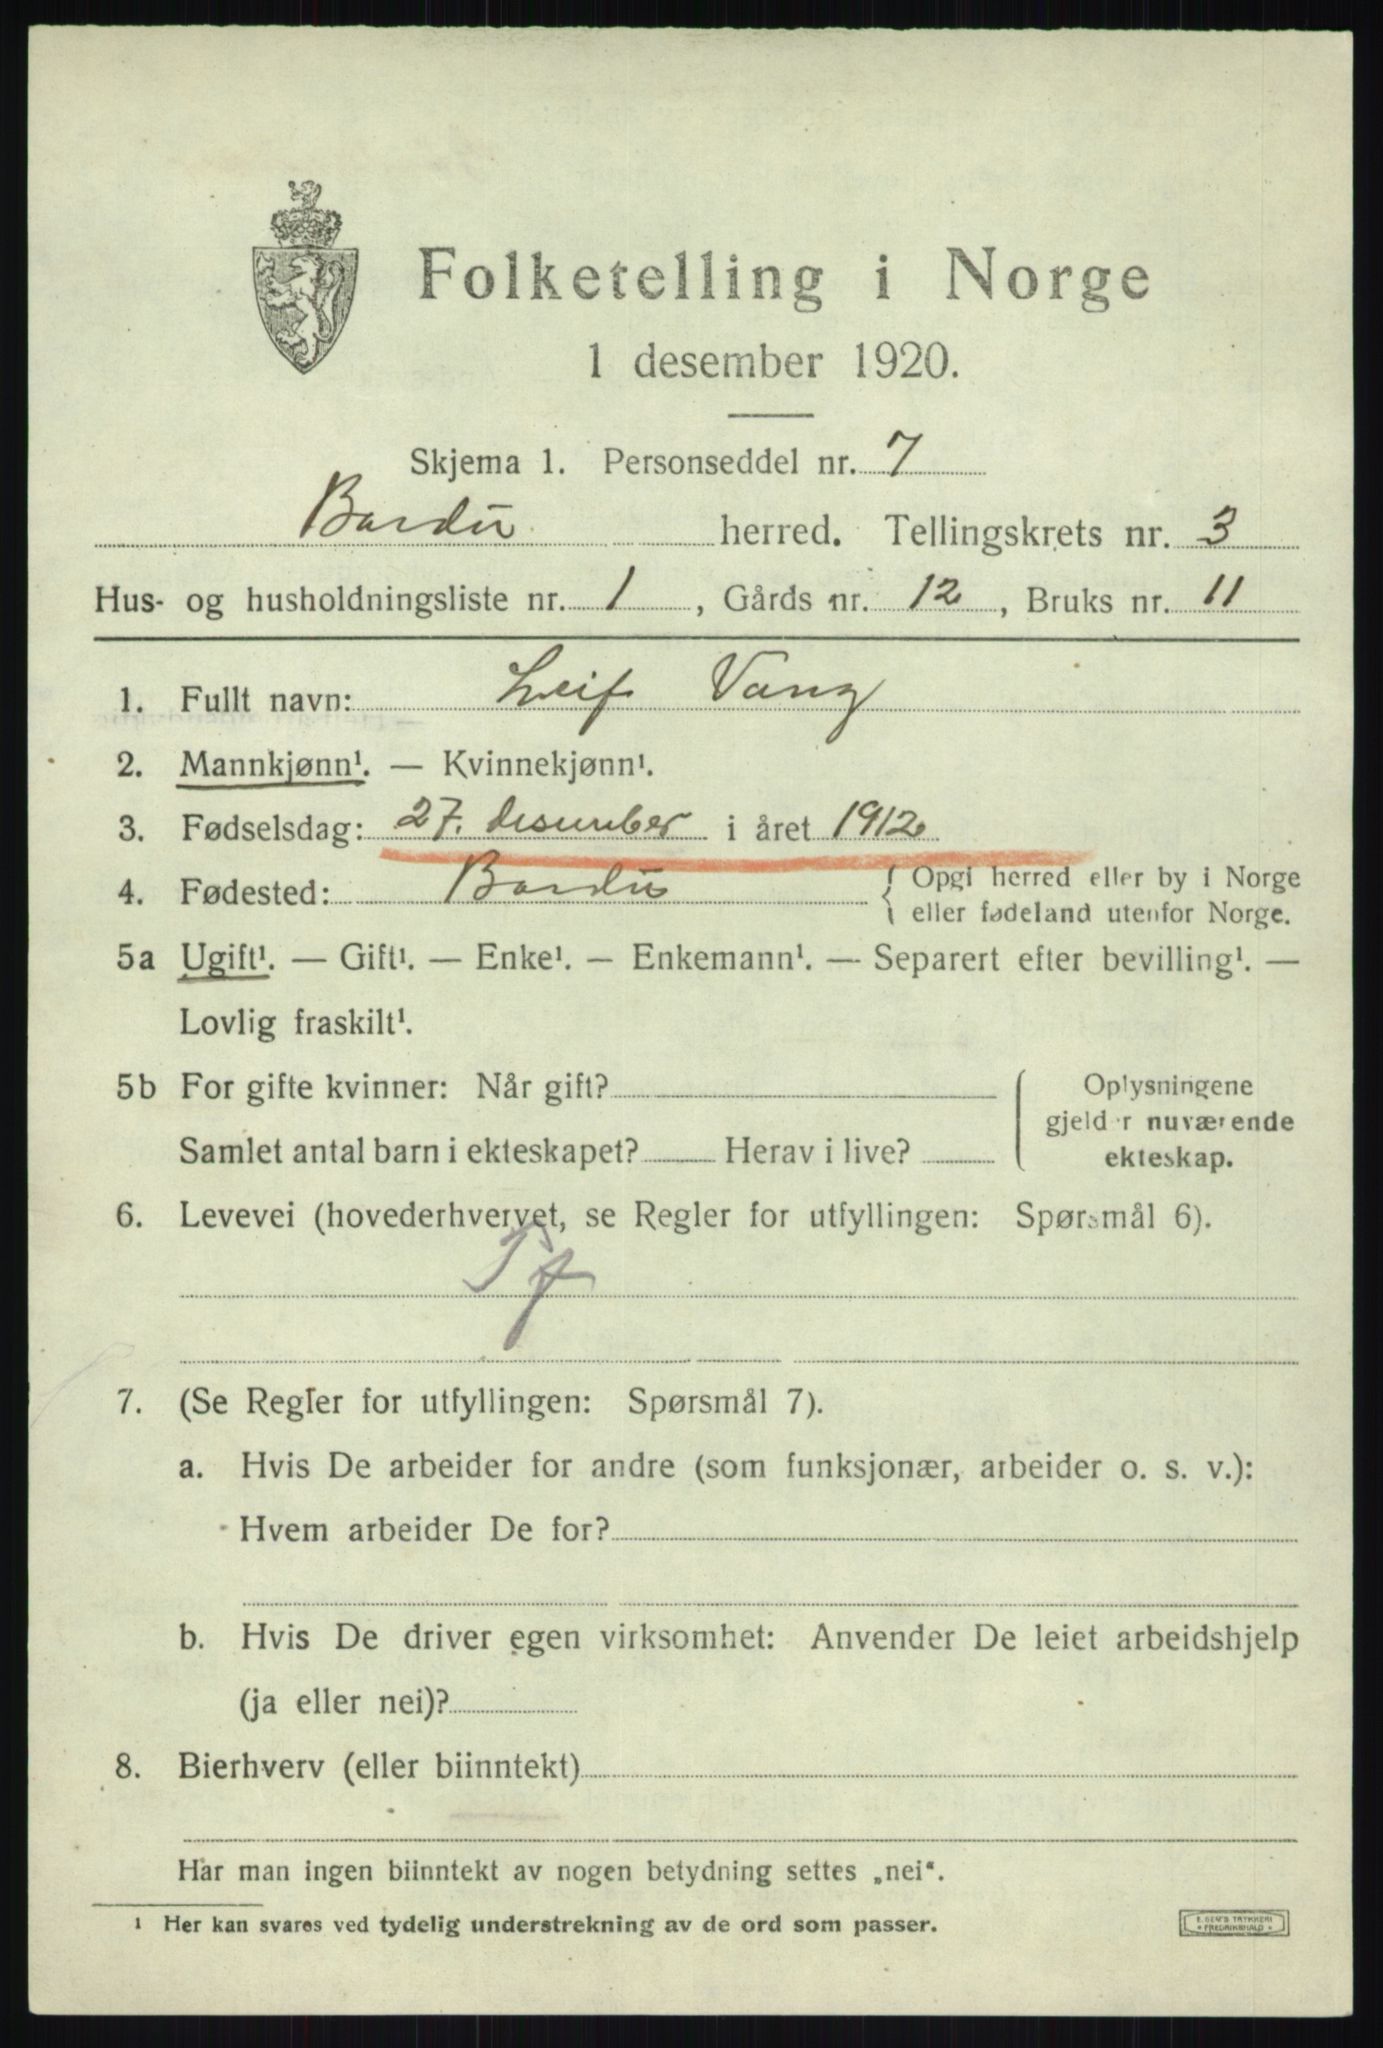 Folketelling i Norge
1 desember 1920.
Skjema 1. Personseddel nr. 7
Bardu herred. Tellingskrets nr. 3
Hus- og husholdningsliste nr. 1, Gårds nr. 12, Bruks nr. 11
1. Fullt navn: Leif Vang
2. Mannkjønn¹. — Kvinnekjønn¹.
3. Fødselsdag: 27. desember i året 1912
4. Fødested: Bardu { Opgi herred eller by i Norge
eller fødeland utenfor Norge.
5a Ugift¹. — Gift¹. — Enke¹. — Enkemann¹. — Separert efter bevilling¹. —
Lovlig fraskilt¹.
5b For gifte kvinner: Når gift?
Samlet antal barn i ekteskapet? Herav i live?
Oplysningene
gjelder nuværende
ekteskap.
6. Levevei (hovederhvervet, se Regler for utfyllingen: Spørsmål 6).
7. (Se Regler for utfyllingen: Spørsmål 7).
a. Hvis De arbeider for andre (som funksjonær, arbeider o. s. v.):
Hvem arbeider De for?
b. Hvis De driver egen virksomhet: Anvender De leiet arbeidshjelp
(ja eller nei)?
8. Bierhverv (eller biinntekt)
Har man ingen biinntekt av nogen betydning settes „nei“.
¹ Her kan svares ved tydelig understrekning av de ord som passer.
E. SEM'S TRYKKERI
* FREDRIKSHALD *